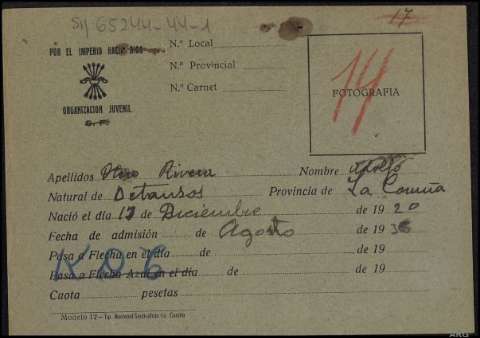 SIJ 65244-44-1
17
POR EL IMPERIO HACIA DIOS
ORGANIZACION JUVENIL
N.º Local
N.º Provincial
N.º Carnet
14
FOTOGRAFIA
Apellidos Otero Rivera Nombre Adolfo
Natural de Betanzos Provincia de La Coruña
Nació el día 17 de Diciembre de 1920
Fecha de admisión de Agosto de 1936
Pasa a Flecha en el día de de 19
Pasa a Flecha Azul en el día de de 19
Cuota pesetas
Modelo 12 - Tip. Nacional Sindicalista